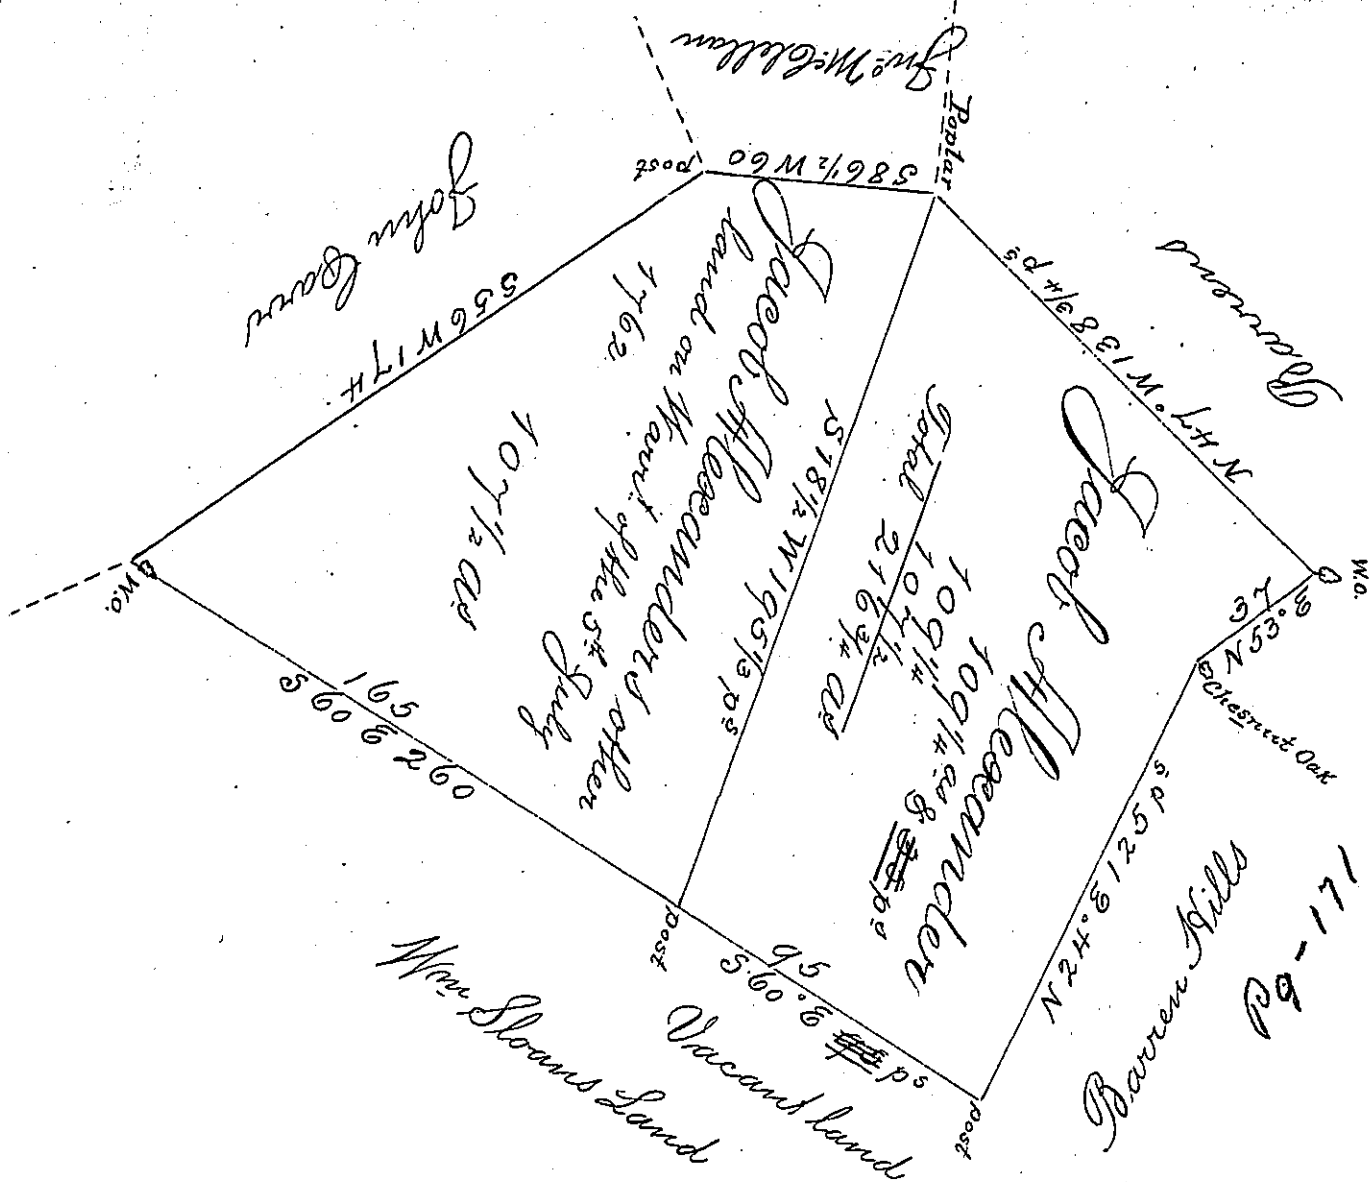 Jno McClellan
Poplar
post
S 86 1/2 W 60
John Carr
S 56 W 174
Barrens
N 47° W 138 3/4 ps
W.O.
37
N 53° E
Chesnut Oak
N 24° E 125 ps.
Barren Hills
Pg-171
Jacob Alexander
109 1/4 as &
109 1/4
107 1/2
Total 216 3/4 as
S 18 1/2 W 195 1/3 ps
Jacob Alexanders other
land on Warrt of the 5th July
1762.
107 1/2 as
W.O.
195
S 60 E 260
post
95
S. 60° E. ps
post
Vacant land
Wm Sloans Land